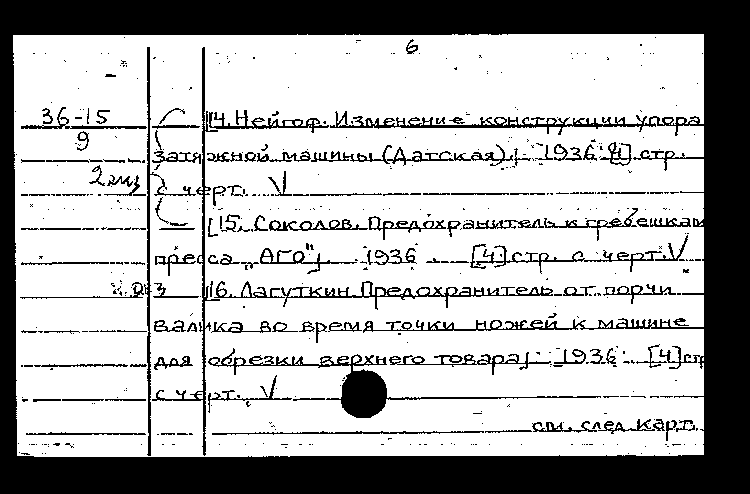 6
36-15 [14. Нейгоф. Изменение конструкции упора
9
затяжной машины (Датская)]. 1936. [4] стр.
2 экз
с черт. V
[15. Соколов. Предохранитель к гребешкам
пресса „АГО"]. 1936. [4] стр. с черт. V
[16. Лагуткин. Предохранитель от порчи
валика во время точки ножей к машине
для обрезки верхнего товара]. 1936. [4] стр
с черт. V
см. след. карт.